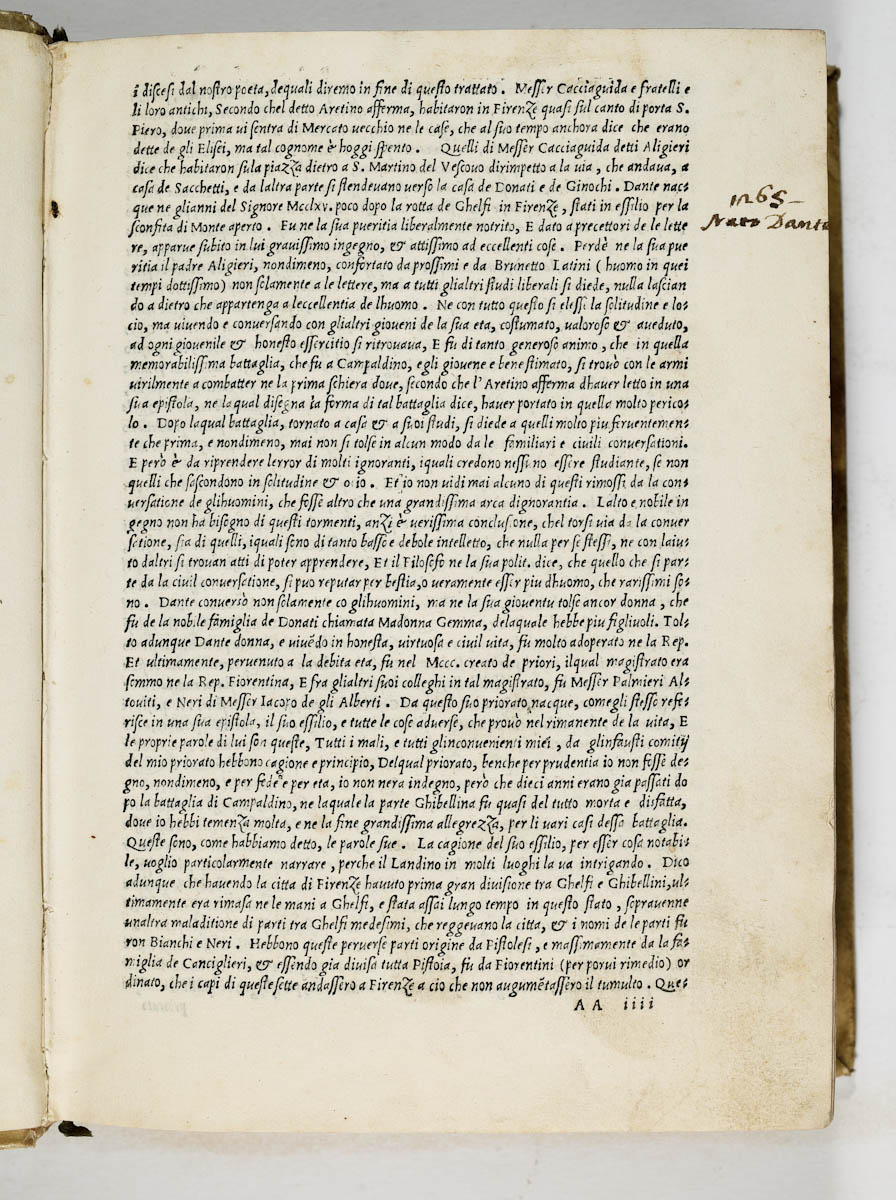 i discesi dal nostro poeta, dequali diremo in fine di questo trattato. Messer Cacciaguida e fratelli e
li loro antichi, Secondo chel detto Aretino afferma, habitaron in Firenze quasi sul canto di porta S.
Piero, doue prima vi sentra di Mercato vecchio ne le case, che al suo tempo anchora dice che erano
dette de gli Elisei, ma tal cognome è hoggi spento. Quelli di Messer Cacciaguida detti Aligieri
dice che habitaron sula piazza dietro a S. Martino del Vescouo dirimpetto a la uia, che andaua, a
casa de Sacchetti, e da laltra parte si stendeuano uerso la casa de Donati e de Ginochi. Dante nac⸗
que ne glianni del Signore Mcclxv. poco dopo la rotta de Ghelfi in Firenze, stati in essilio per la
sconfita di Monte aperto. Fu ne la sua pueritia liberalmente notrito, E dato a precettori de le lette
re, apparue subito in lui grauissimo ingegno, & attissimo ad eccellenti cose. Perdè ne la sua pue
ritia il padre Aligieri, nondimeno, confortato da prossimi e da Brunetto Latini (huomo in quei
tempi dottissimo) non solamente a le lettere, ma a tutti glialtri studi liberali si diede, nulla lascian
do a dietro che appartenga a leccellentia de lhuomo. Ne con tutto questo si elesse la solitudine e lo⸗
cio, ma uiuendo e conuersando con glialtri gioueni de la sua eta, costumato, ualoroso & aueduto,
ad ogni giouenile & honesto essercitio si ritrouaua, E fu di tanto generoso animo, che in quella
memorabilissima battaglia, che fu a Campaldino, egli giouene e benestimato, si trouò con le armi
uirilmente a combatter ne la prima schiera doue, secondo che l'Aretino afferma dhauer letto in una
sua epistola, ne laqual disegna la forma di tal battaglia dice, hauer portato in quella molto perico⸗
lo. Dopo laqual battaglia, tornato a casa & a suoi studi, si diede a quelli molto piu feruentemen⸗
te che prima, e nondimeno, mai non si tolse in alcun modo da le familiari e ciuili conuersationi.
E però è da riprendere lerror di molti ignoranti, iquali credono nessuno essere studiante, se non
quelli che sascondono in solitudine & ocio. Et io non uidi mai alcuno di questi rimossi da la con⸗
uersatione de glihuomini, che fosse altro che una grandissima arca dignorantia. Lalto e nobile in
gegno non ha bisogno di questi tormenti, anzi è uerissima conclusione, chel torsi uia da la conuer
satione, sia di quelli, iquali sono di tanto basso e debole intelletto, che nulla per se stessi, ne con laiu⸗
to daltri si trouan atti di poter apprendere, Et il Filosofo ne la sua polit. dice, che quello che si par⸗
te da la ciuil conuersatione, si puo reputar per bestia, o ueramente esser piu dhuomo, che rarissimi so⸗
no. Dante conuersò non solamente co glihuomini, ma ne la sua giouentu tolse ancor donna, che
fu de la nobile famiglia de Donati chiamata Madonna Gemma, delaquale hebbe piu figliuoli. Tol⸗
to adunque Dante donna, e uiuẽdo in honesta, uirtuosa e ciuil uita, fu molto adoperato ne la Rep.
Et ultimamente, peruenuto a la debita eta, fu nel Mccc. creato de priori, ilqual magistrato era
sommo ne la Rep. Fiorentina, E fra glialtri suoi colleghi in tal magistrato, fu Messer Palmieri Al⸗
touiti, e Neri di Messer Iacopo de gli Alberti. Da questo suo priorato nacque, come gli stesso refe⸗
risce in una sua epistola, il suo essilio, e tutte le cose aduerse, che prouò nel rimanente de la uita, E
le proprie parole di lui son queste, Tutti i mali, e tutti glinconuenienti miei, da glinfausti comitij
del mio priorato hebbono cagione e principio, Delqual priorato, benche per prudentia io non fosse de⸗
gno, nondimeno, e per fede e per eta, io non nera indegno, però che dieci anni erano gia passati do
po la battaglia di Campaldino, ne laquale la parte Ghibellina fu quasi del tutto morta e disfatta,
doue io hebbi temenza molta, e ne la fine grandissima allegrezza, per li uari casi dessa battaglia.
Queste sono, come habbiamo detto, le parole sue. La cagione del suo essilio, per esser cosa notabi⸗
le, uoglio particolarmente narrare, perche il Landino in molti luoghi la ua intrigando. Dico
adunque che hauendo la citta di Firenze hauuto prima gran diuisione tra Ghelfi e Ghibellini, ul⸗
timamente era rimasa ne le mani a Ghelfi, e stata assai lungo tempo in questo stato, soprauenne
unaltra maladitione di parti tra Ghelfi medesimi, che reggeuano la citta, & i nomi de le parti fu
ron Bianchi e Neri. Hebbono queste peruerse parti origine da Pistolesi, e massimamente da la fa⸗
miglia de Canciglieri, & essendo gia diuisa tutta Pistoia, fu da Fiorentini (per porui rimedio) or
dinato, che i capi di queste sette andassero a Firenze a cio che non augumẽtassero il tumulto. Que⸗
AA iiii
1265
Nato Dante